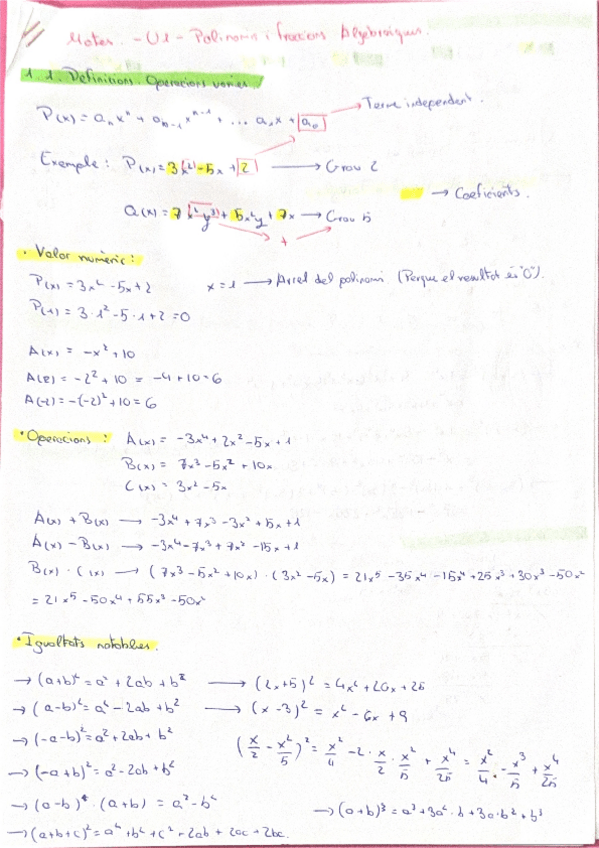 Mates. - U1 - Polinomis i fraccions Algebraiques.
1.1. Definicions. Operacions vàries.
P(x) = aₙxⁿ + aₙ₋₁xⁿ⁻¹ + ... a₁x + a₀ → Terme independent.
Exemple: P(x) = 3x² - 5x + 2 → Grau 2
→ Coeficients.
Q(x) = 7x²y³ + 5x²y + 7x → Grau 5
+
· Valor numèric:
P(x) = 3x² - 5x + 2 x = 1 → Arrel del polinomi. (Perque el resultat és "0").
P(1) = 3·1² - 5·1 + 2 = 0
A(x) = -x² + 10
A(2) = -2² + 10 = -4 + 10 = 6
A(-2) = -(-2)² + 10 = 6
· Operacions: A(x) = -3x⁴ + 2x² - 5x + 1
B(x) = 7x³ - 5x² + 10x
C(x) = 3x² - 5x
A(x) + B(x) → -3x⁴ + 7x³ - 3x² + 5x + 1
A(x) - B(x) → -3x⁴ - 7x³ + 7x² - 15x + 1
B(x) · C(x) → (7x³ - 5x² + 10x) · (3x² - 5x) = 21x⁵ - 35x⁴ - 15x⁴ + 25x³ + 30x³ - 50x²
= 21x⁵ - 50x⁴ + 55x³ - 50x²
· Igualtats notables.
→ (a+b)² = a² + 2ab + b² → (2x+5)² = 4x² + 20x + 25
→ (a-b)² = a² - 2ab + b² → (x-3)² = x² - 6x + 9
→ (-a-b)² = a² + 2ab + b²
(x/2 - x²/5)² = x²/4 - 2 · x/2 · x²/5 + x⁴/25 = x²/4 - x³/5 + x⁴/25
→ (-a+b)² = a² - 2ab + b²
→ (a-b) · (a+b) = a² - b² → (a+b)³ = a³ + 3a²·b + 3a·b² + b³
→ (a+b+c)² = a² + b² + c² + 2ab + 2ac + 2bc.